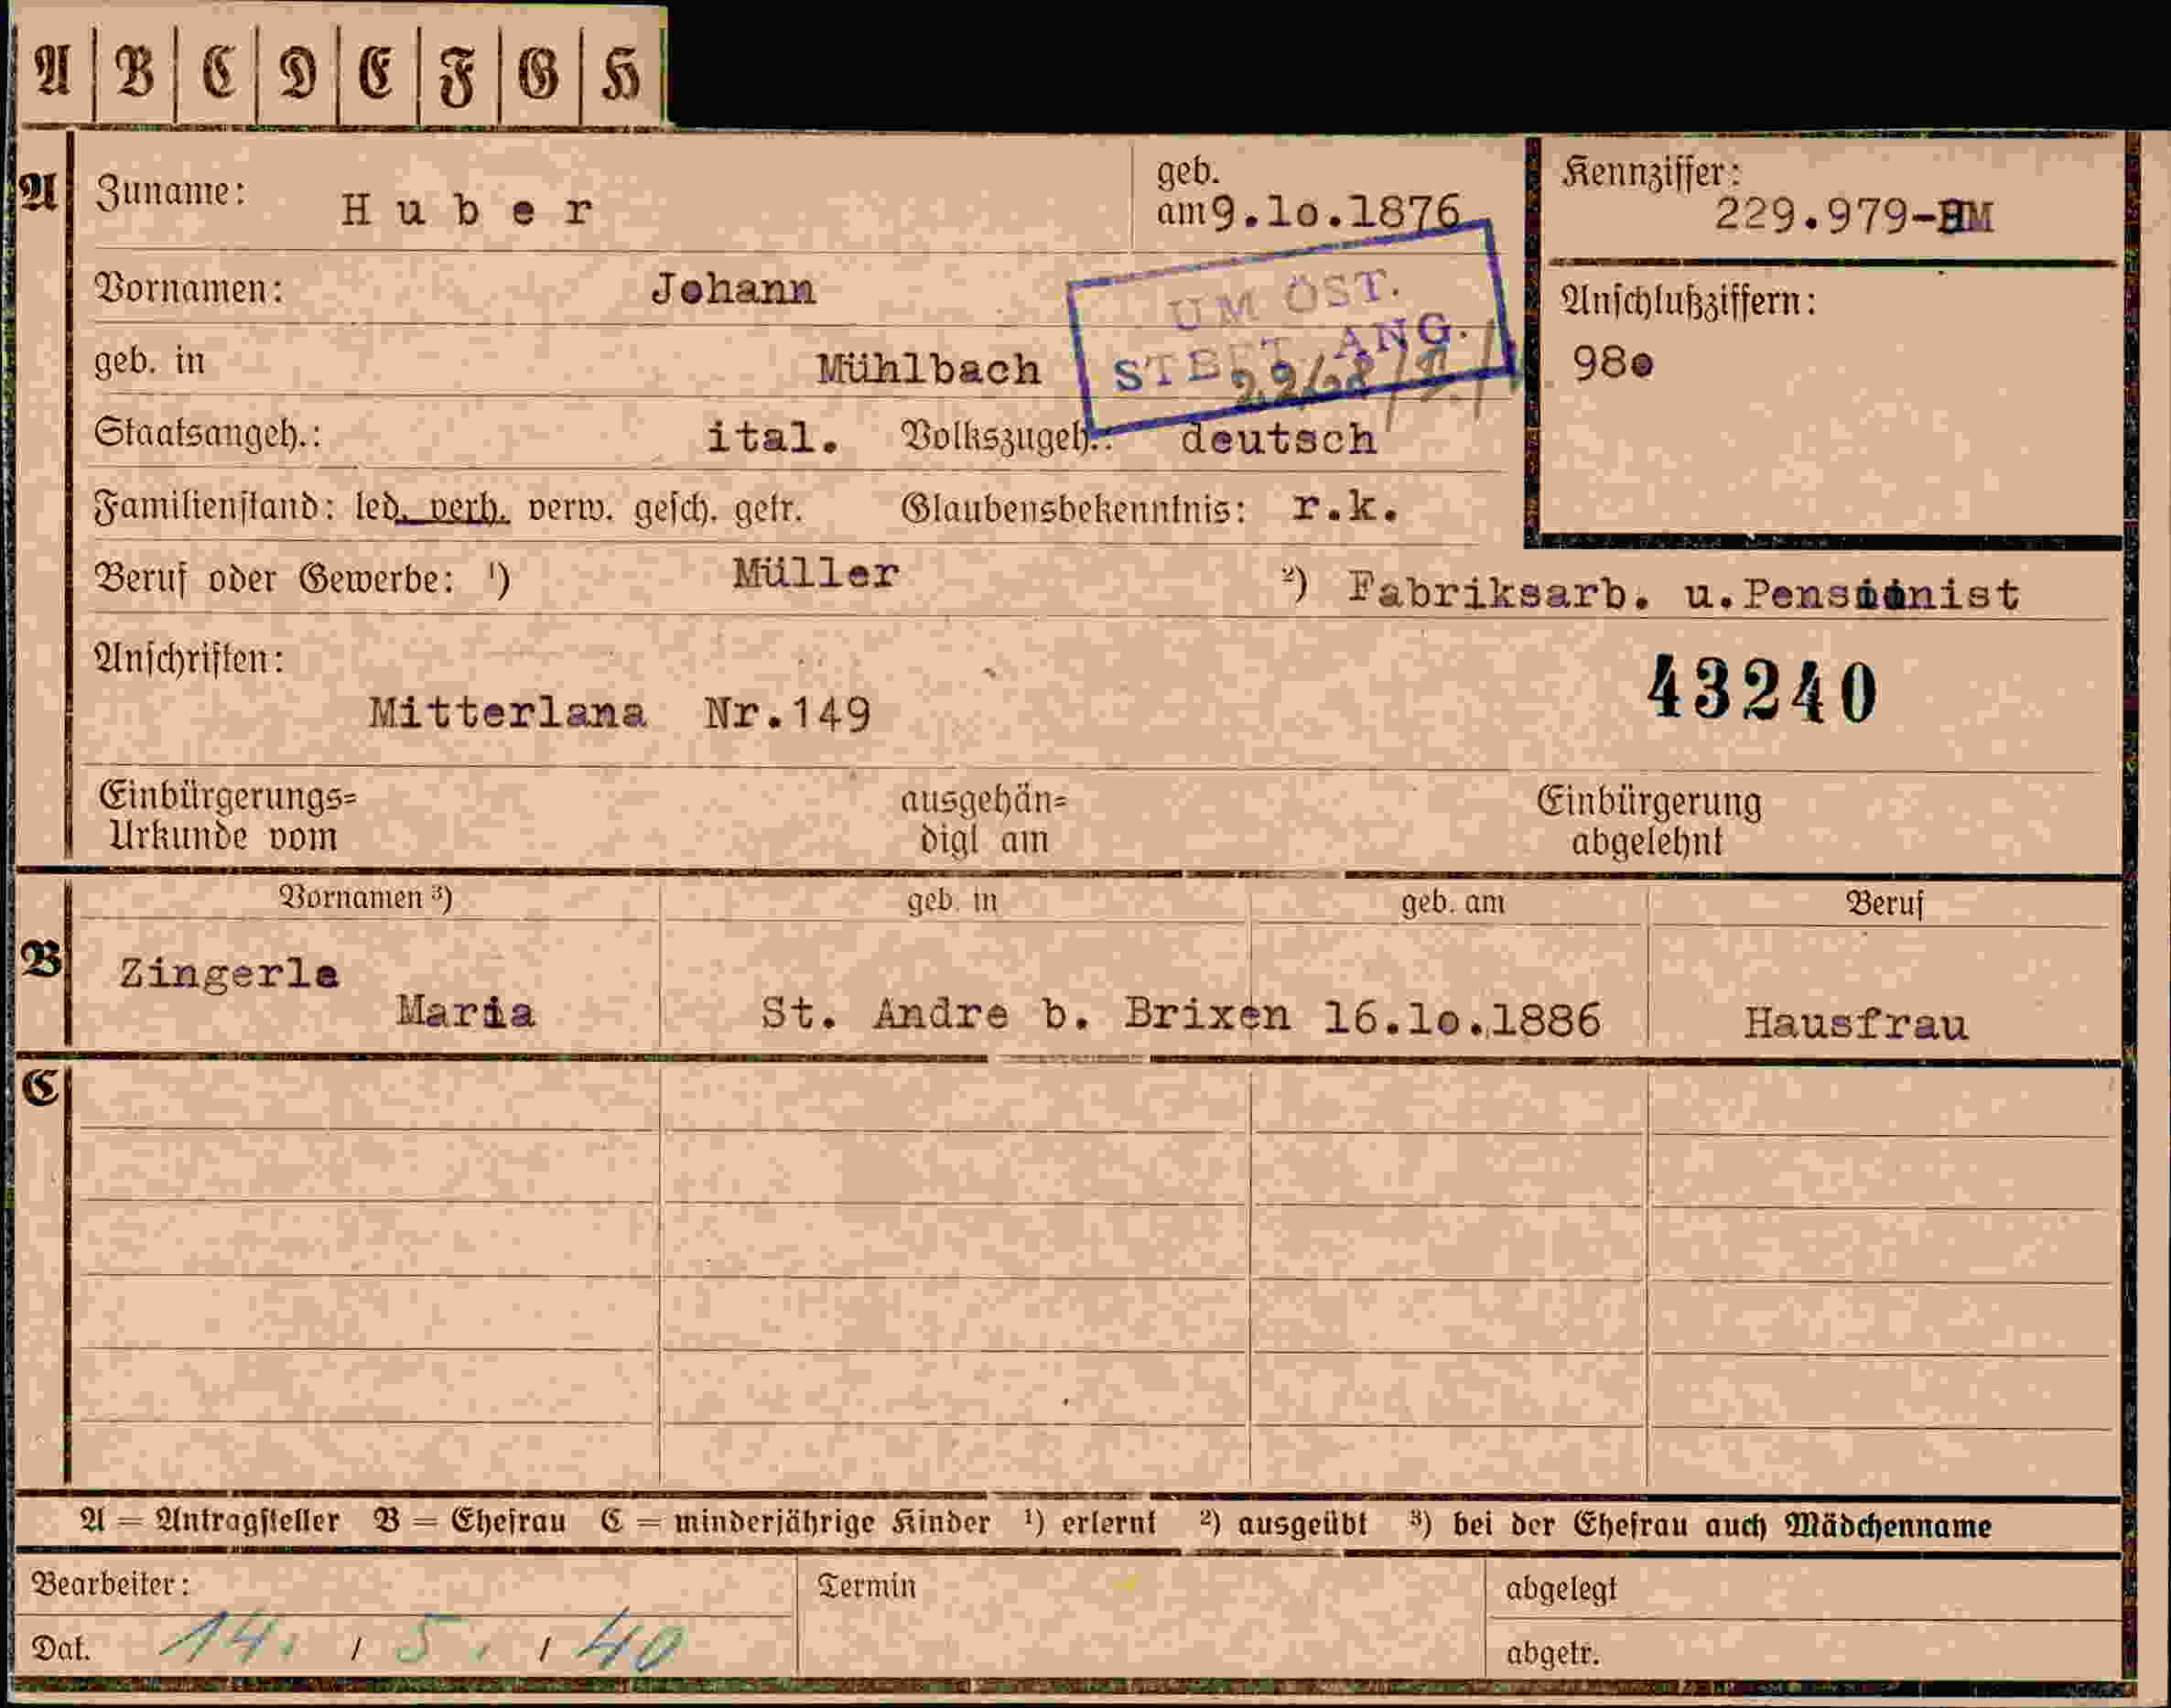 A B C D E F G H
A Zuname: Huber geb. am 9.10.1876 Kennziffer: 229.979-HM
Vornamen: Johann
UM ÖST.
STBFT. ANG.
Anschlußziffern:
geb. in Mühlbach 980
Staatsangeh.: ital. Volkszugeh.: deutsch
Familienstand: led. verh. verw. gesch. getr. Glaubensbekenntnis: r.k.
Beruf oder Gewerbe: ¹) Müller ²) Fabriksarb. u.Pensionist
Anschriften:
Mitterlana Nr.149 43240
Einbürgerungs= ausgehän= Einbürgerung
Urkunde vom digt am abgelehnt
Vornamen ³) geb. in geb. am Beruf
B Zingerle
Maria St. Andre b. Brixen 16.10.1886 Hausfrau
C
A = Antragsteller B = Ehefrau C = minderjährige Kinder ¹) erlernt ²) ausgeübt ³) bei der Ehefrau auch Mädchenname
Bearbeiter: Termin abgelegt
Dat. 14. / 5. / 40 abgetr.